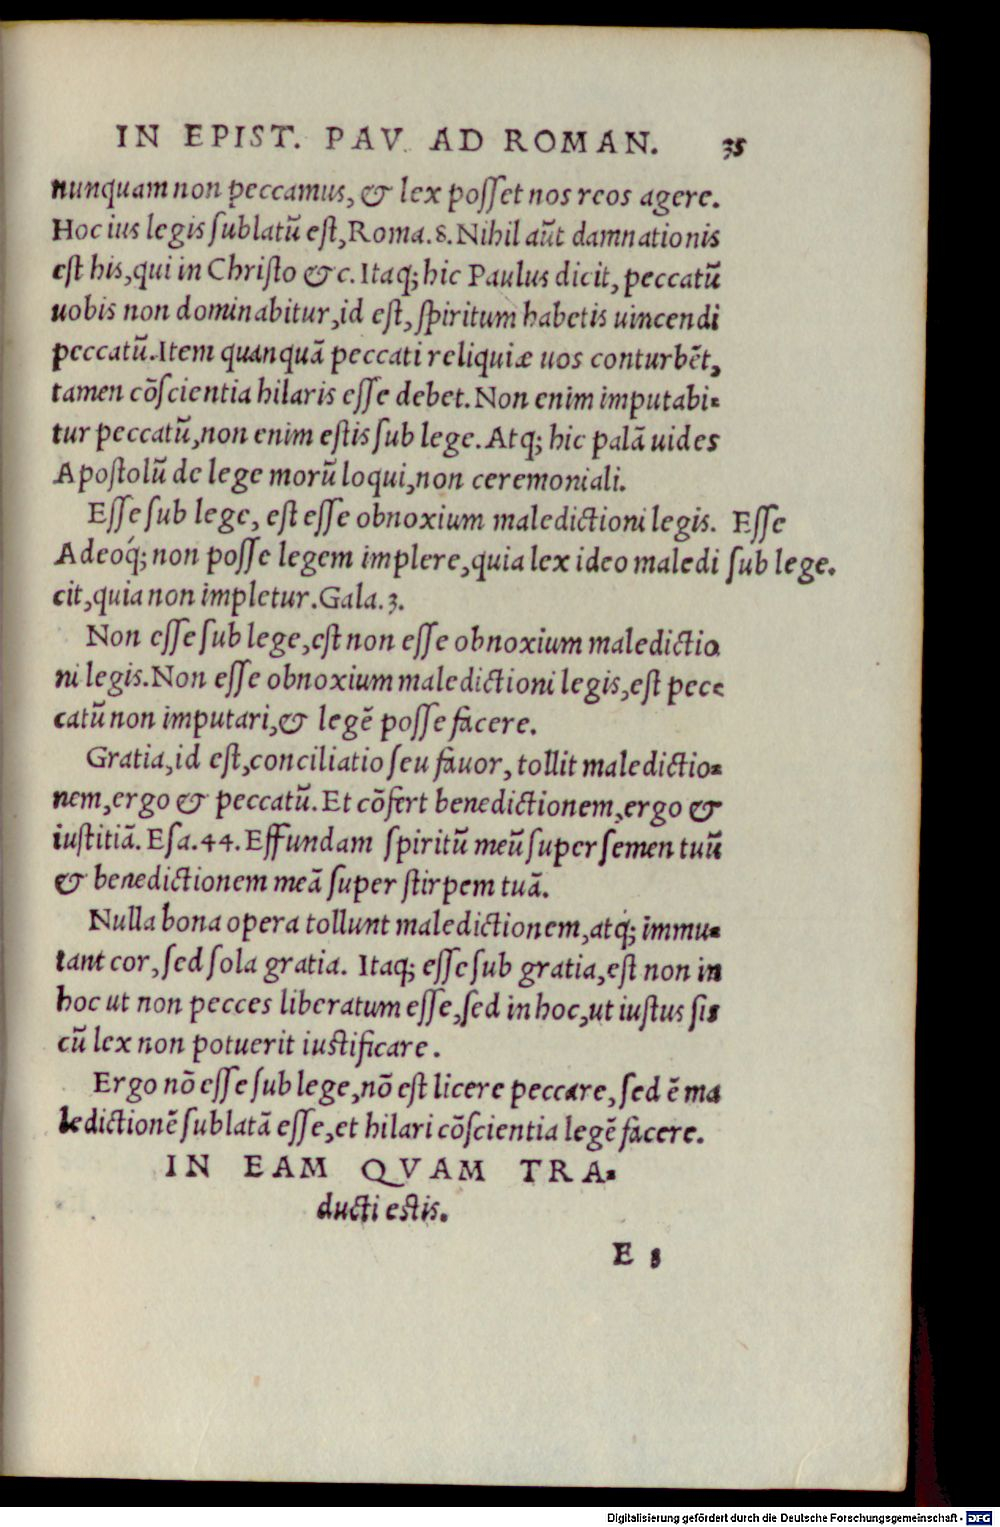 IN EPIST. PAV. AD ROMAN. 35
nunquam non peccamus, & lex posset nos reos agere.
Hoc ius legis sublatū est, Roma. 8. Nihil aūt damnationis
est his, qui in Christo &c. Itaq; hic Paulus dicit, peccatū
uobis non dominabitur, id est, spiritum habetis uincendi
peccatū. Item quanquā peccati reliquiæ uos conturbēt,
tamen cōscientia hilaris esse debet. Non enim imputabi-
tur peccatū, non enim estis sub lege. Atq; hic palā uides
Apostolū de lege morū loqui, non ceremoniali.
Esse sub lege, est esse obnoxium maledictioni legis. Esse
Adeoq́; non posse legem implere, quia lex ideo maledi sub lege.
cit, quia non impletur. Gala. 3.
Non esse sub lege, est non esse obnoxium maledictio
ni legis. Non esse obnoxium maledictioni legis, est pec-
catū non imputari, & legē posse facere.
Gratia, id est, conciliatio seu fauor, tollit maledictio-
nem, ergo & peccatū. Et cōfert benedictionem, ergo &
iustitiā. Esa. 44. Effundam spiritū meū super semen tuū
& benedictionem meā super stirpem tuā.
Nulla bona opera tollunt maledictionem, atq́; immu-
tant cor, sed sola gratia. Itaq; esse sub gratia, est non in
hoc ut non pecces liberatum esse, sed in hoc, ut iustus sis
cū lex non potuerit iustificare.
Ergo nō esse sub lege, nō est licere peccare, sed ē ma
ledictionē sublatā esse, et hilari cōscientia legē facere.
IN EAM QVAM TRA-
ducti estis.
E 3
Digitalisierung gefördert durch die Deutsche Forschungsgemeinschaft - DFG